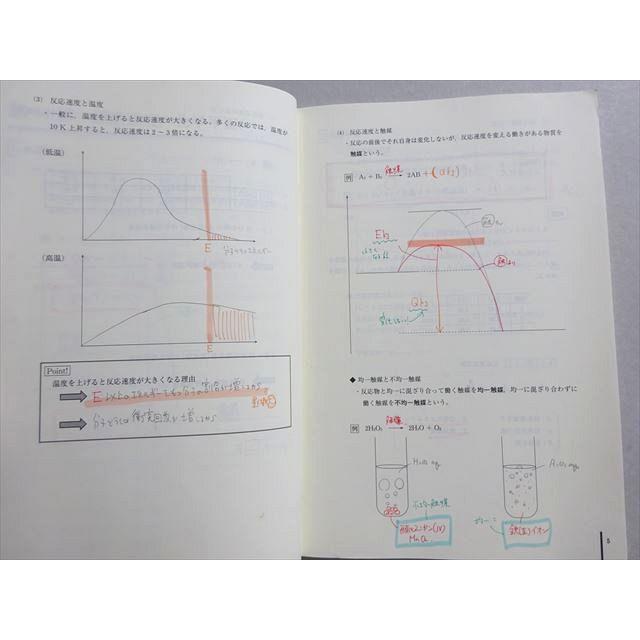 (3) 反応速度と温度
・一般に,温度を上げると反応速度が大きくなる。多くの反応では,温度が
10 K上昇すると,反応速度は2～3倍になる。
(低温)
E
分子のエネルギー
(高温)
E
Point!
温度を上げると反応速度が大きくなる理由
E以上のエネルギーをもつ分子の割合が増えるから
分子どうしの衝突回数が増えるから
(4) 反応速度と触媒
・反応の前後でそれ自身は変化しないが,反応速度を変える働きがある物質を
触媒という。
例 A₂ + B₂ 触媒 2AB + (Q kJ)
E kJ
Q kJ
◆ 均一触媒と不均一触媒
・反応物と均一に混ざり合って働く触媒を均一触媒,均一に混ざり合わずに
働く触媒を不均一触媒という。
例 2H₂O₂ 触媒 2H₂O + O₂
H₂O₂ aq
不均一触媒
酸化マンガン(IV)
MnO₂
H₂O₂ aq
鉄(III)イオン
5